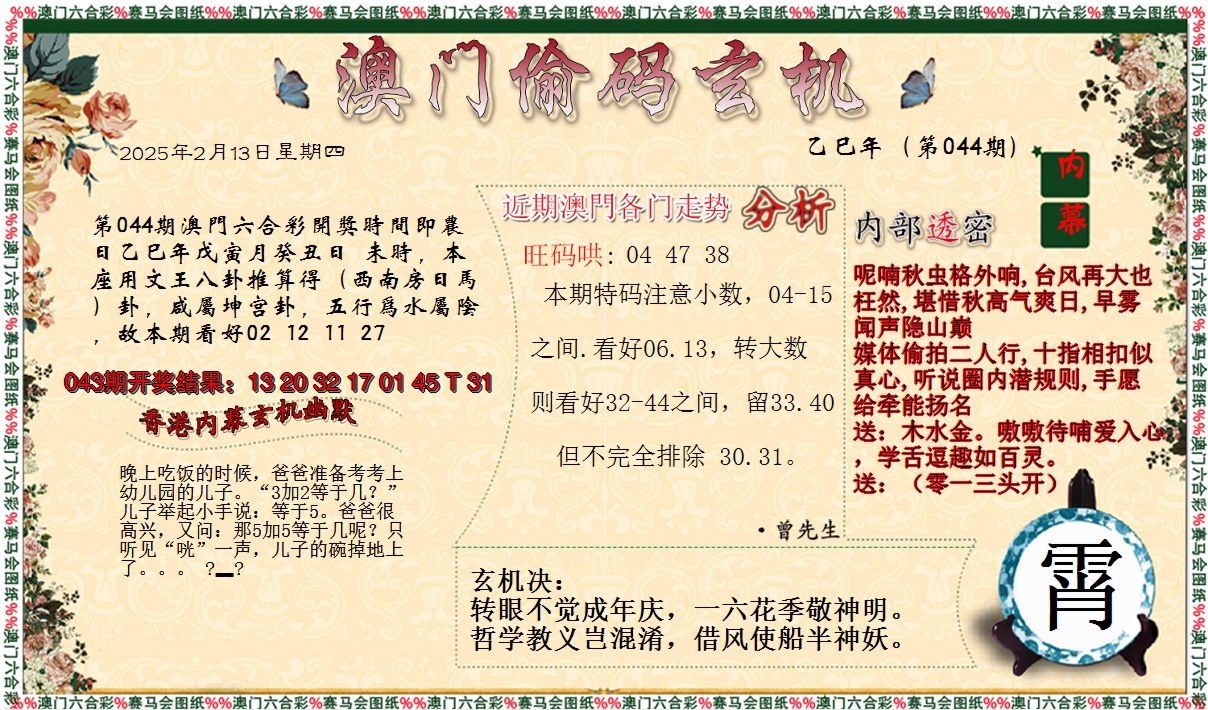 %%澳门六合彩%赛马会图纸%%澳门六合彩%赛马会图纸%%澳门六合彩%赛马会图纸%%澳门六合彩%赛马会图纸%%澳门六合彩%赛马会图纸%%澳门六合彩%赛马会图纸%%
澳门偷码玄机
2025年2月13日星期四
乙巳年（第044期）
内幕
第044期澳門六合彩開獎時間即農
日乙巳年戊寅月癸丑日 未時，本
座用文王八卦推算得（西南房日馬
）卦，咸屬坤宫卦，五行爲水屬陰
，故本期看好02 12 11 27
043期开奖结果：13 20 32 17 01 45 T 31
香港内幕玄机幽默
晚上吃饭的时候，爸爸准备考考上
幼儿园的儿子。“3加2等于几？”
儿子举起小手说：等于5。爸爸很
高兴，又问：那5加5等于几呢？只
听见“咣”一声，儿子的碗掉地上
了。。。 ?▂?
近期澳門各门走势 分析
旺码哄: 04 47 38
本期特码注意小数，04-15
之间.看好06.13，转大数
则看好32-44之间，留33.40
但不完全排除 30.31。
·曾先生
内部透密
呢喃秋虫格外响,台风再大也
枉然,堪惜秋高气爽日,早雾
闻声隐山巅
媒体偷拍二人行,十指相扣似
真心,听说圈内潜规则,手愿
给牵能扬名
送：木水金。嗷嗷待哺爱入心
，学舌逗趣如百灵。
送：（零一三头开）
玄机决：
转眼不觉成年庆，一六花季敬神明。
哲学教义岂混淆，借风使船半神妖。
霄
%%澳门六合彩%赛马会图纸%%澳门六合彩%赛马会图纸%%澳门六合彩%赛马会图纸%%澳门六合彩%赛马会图纸%%澳门六合彩%赛马会图纸%%澳门六合彩%赛马会图纸%%